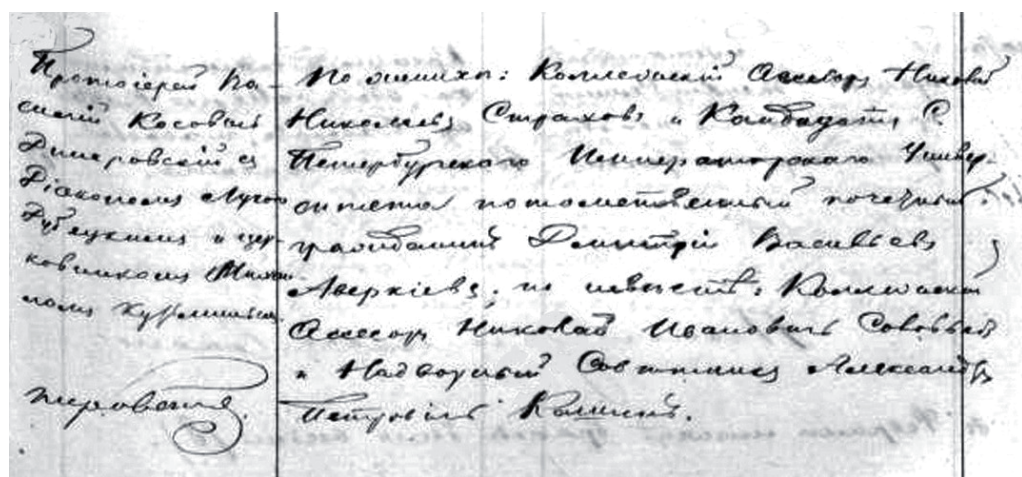 Протоіерей Ва-
силій Косовичъ
Димеровскій съ
Діакономъ
и цер-
ковникомъ
номъ
По жениху: Коллежскій Асессоръ Николай
Николаевъ Страховъ и Кандидатъ С.
Петербургскаго Императорскаго Универ-
ситета потомственный почетный
гражданинъ Дмитрій Васильевъ
Аверкіевъ; по невѣстѣ: Коллежскій
Асессоръ Николай Ивановичъ Соловьевъ
и Надворный Совѣтникъ Александръ
Петровичъ